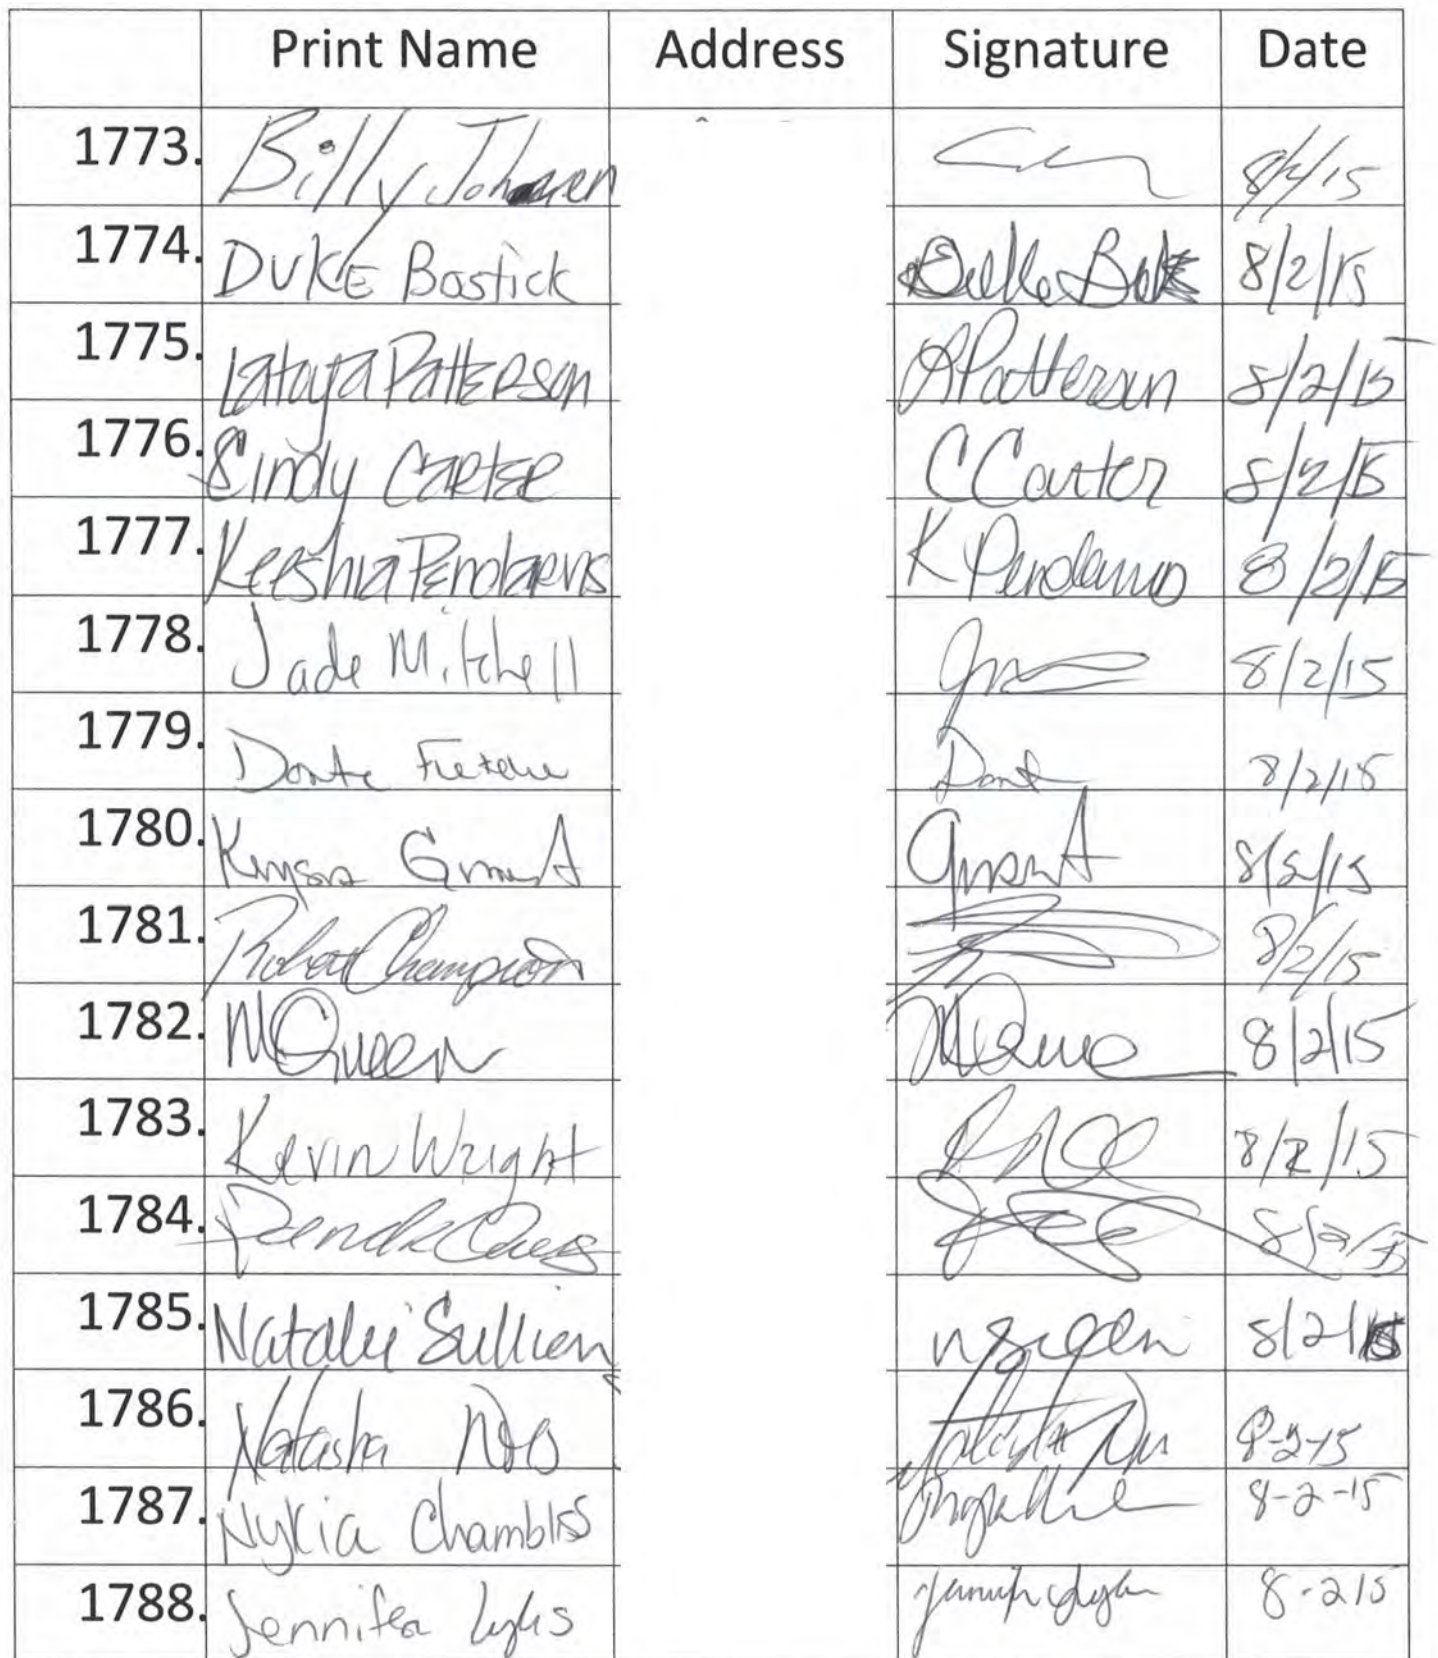 Print Name Address Signature Date
1773. Billy Johnson 8/2/15
1774. DUKE Bostick 8/2/15
1775. Lataya Patterson Patterson 8/2/15
1776. Cindy Carter C Carter 8/2/15
1777. Keeshia Pendarvis K Pendarvis 8/2/15
1778. Jade Mitchell 8/2/15
1779. Donte 8/2/15
1780. Grant Grant 8/2/15
1781. Robert Champion 8/2/15
1782. McQueen McQue 8/2/15
1783. Kevin Wright 8/2/15
1784. 8/2/15
1785. Natalie 8/2/15
1786. Natasha 8-2-15
1787. Nykia Chambliss 8-2-15
1788. Jennifer Lyles 8-2 15